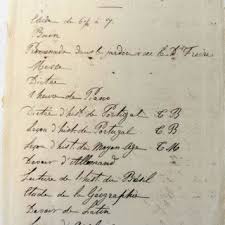 de 6¼ à 7.
Bain
Promenade dans le jardin avec C. D. Freire
Messe
Dictée
1 heure de Piano
Dictée d'hist. de Portugal C B
Leçon d'hist. de Portugal C B
Leçon d'hist. du Moyen-Age C M
Devoir d'Allemand
Lecture de l'hist. du Brésil
Etude de la Géographie
Devoir de Latin